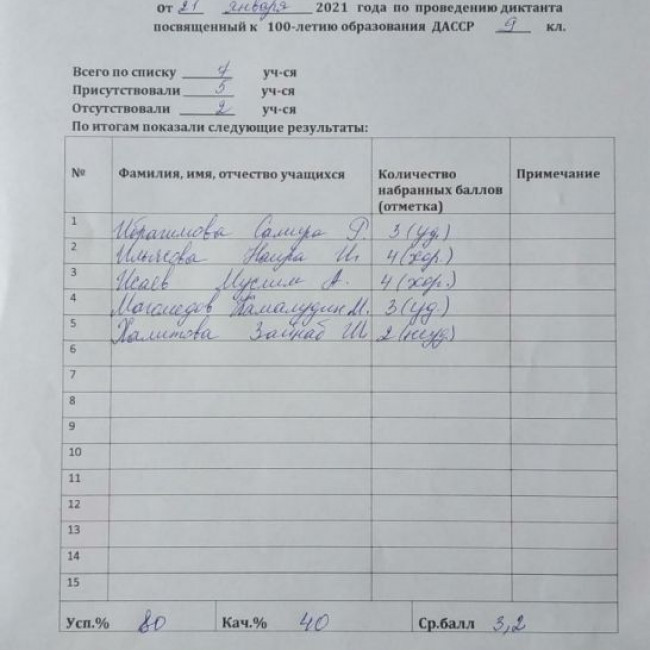 от 21 января 2021 года по проведению диктанта
посвященный к 100-летию образования ДАССР 9 кл.
Всего по списку 7 уч-ся
Присутствовали 5 уч-ся
Отсутствовали 2 уч-ся
По итогам показали следующие результаты:
№ Фамилия, имя, отчество учащихся Количество набранных баллов (отметка) Примечание
1 Ибрагимова Самира Г. 3 (уд.)
2 Ильясова Наира И. 4 (хор.)
3 Исаев Муслим А. 4 (хор.)
4 Магомедов Камалудин М. 3 (уд.)
5 Халитова Зайнаб Ш. 2 (неуд)
6
7
8
9
10
11
12
13
14
15
Усп.% 80 Кач.% 40 Ср.балл 3,2